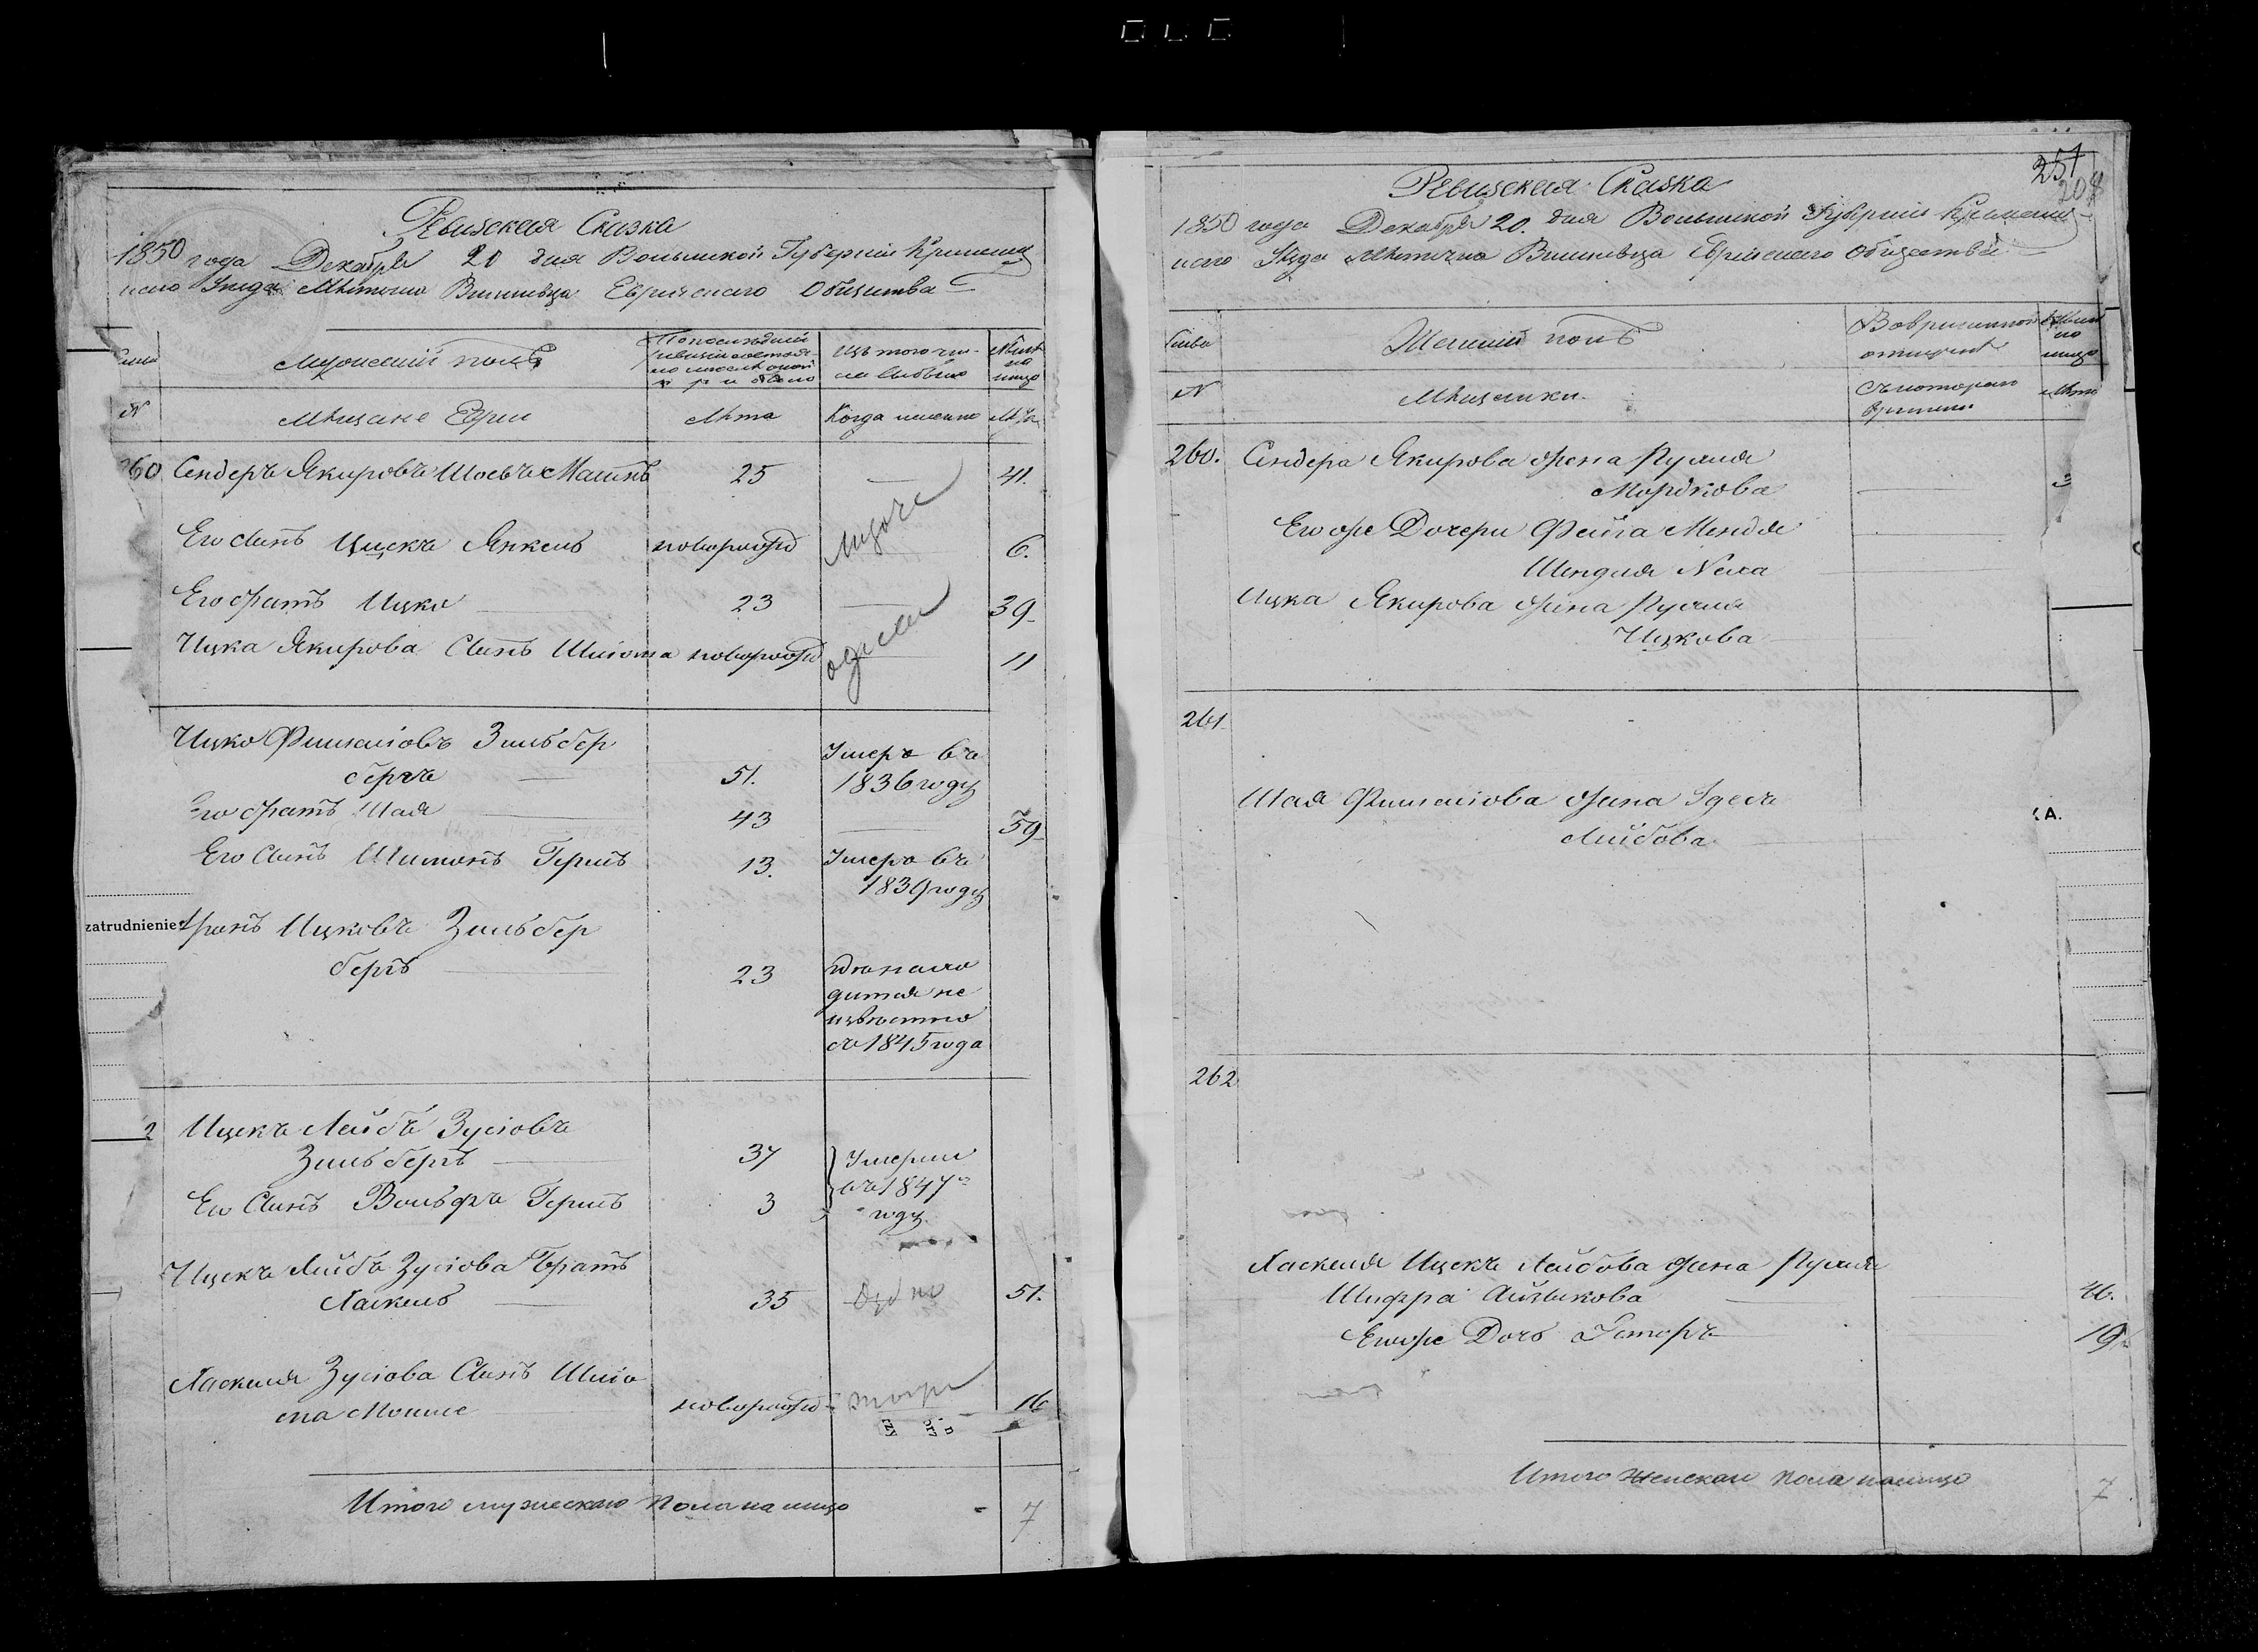 Ревизская Сказка
1850 года Декабря 20 дня Волынской Губернии Кременец
каго Уезда Местечка Вишневца Еврейскаго Общества
Мужеский полъ
Изъ того чи-
сла выбыло
Ныне
на
лицо
N
Мещане Евреи
Лета
Когда именно
Лета
260 Сендеръ Якировъ 25 41.
Его Сынъ Ицекъ Янкель новорожд 6.
Его братъ Ицко 23 39
Ицка Якирова Сынъ Шлиома новорожд 11
Ицко Фишелiовъ Зильбер
бергъ 51. Умеръ въ
1836 году
Его братъ Шая 43 59
Его Сынъ Шимонъ Гершъ 13. Умеръ въ
1839 году
zatrudnienie
Аронъ Ицковъ Зильбер
бергъ 23
съ 1845 года
2 Ицекъ Лейбъ Зусiовъ
Зильбергъ 37 Умерли
въ 1847
году
Его Сынъ Вольфъ Гершъ 3
Ицекъ Лейбъ Зусiова Братъ
Хаскель 35 51.
Хаскеля Зусiова Сынъ Шлiо
ма Мошие новорожд 16
Итого мужескаго пола на лицо 7
257
208
Ревизская Сказка
1850 года Декабря 20. дня Волынской Губернiи Кременец
каго Уезда Местечка Вишневца Еврейскаго Общества
Женский полъ
Во временной
отлучке
Ныне
на
лицо
N
Мещанки.
Съ котораго
времени
Лета
260. Сендера Якирова жена Рухля
Мордкова 3
Его же Дочери Фейга Мендля
Шендля Неха
Ицка Якирова жена Рухля
Ицкова
261
Шая Фишелiова жена Удесъ
Лейбова
A.
262
Хаскеля Ицекъ Лейбова жена Рухля
Шифра Айзикова 46.
Его же Дочь Эстеръ 19
Итого женскаго пола налицо 7